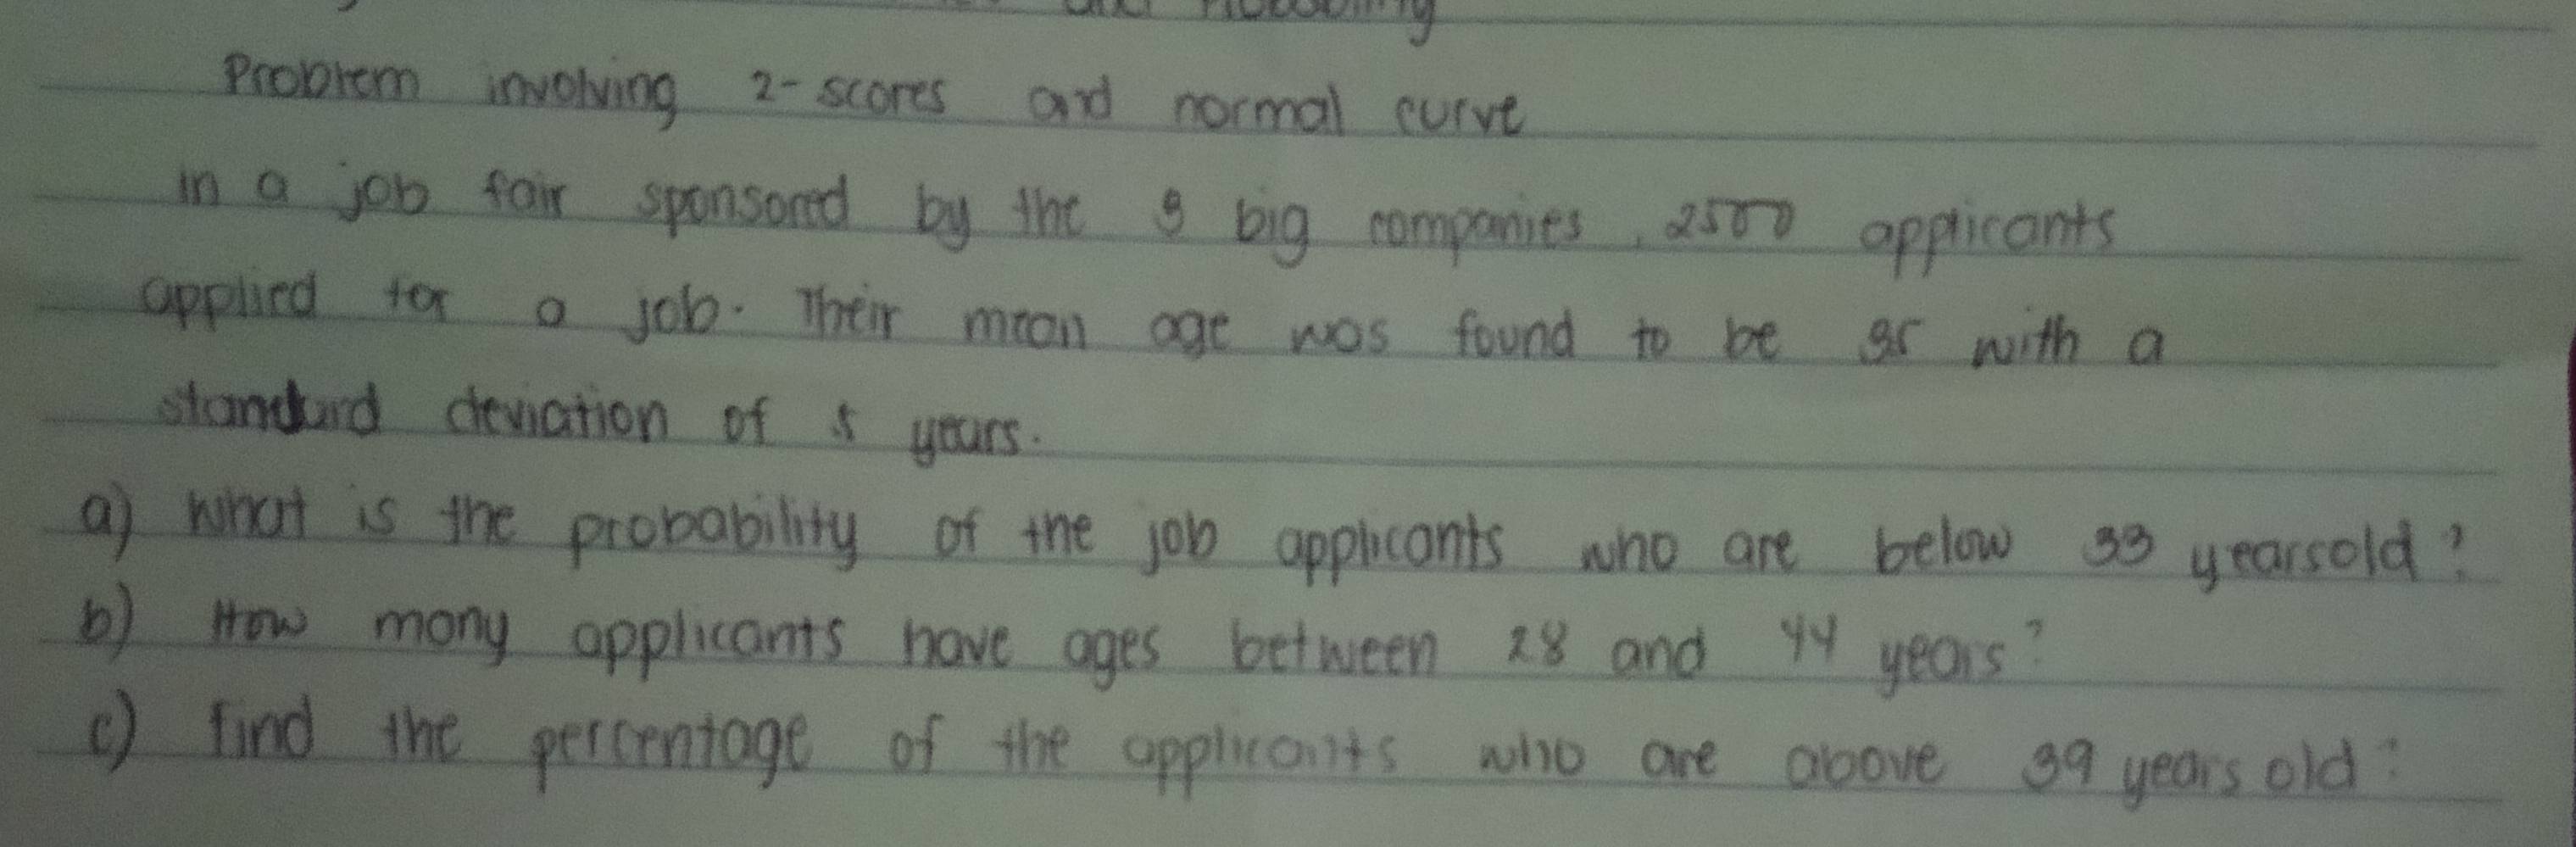 and Probability
Problem involving z-scores and normal curve
in a job fair sponsored by the 3 big companies, 2500 applicants
applied for a job. Their mean age was found to be 35 with a
standard deviation of 5 years.
a) what is the probability of the job applicants who are below 33 yearsold?
b) How many applicants have ages between 28 and 44 years?
c) find the percentage of the applicants who are above 39 years old?